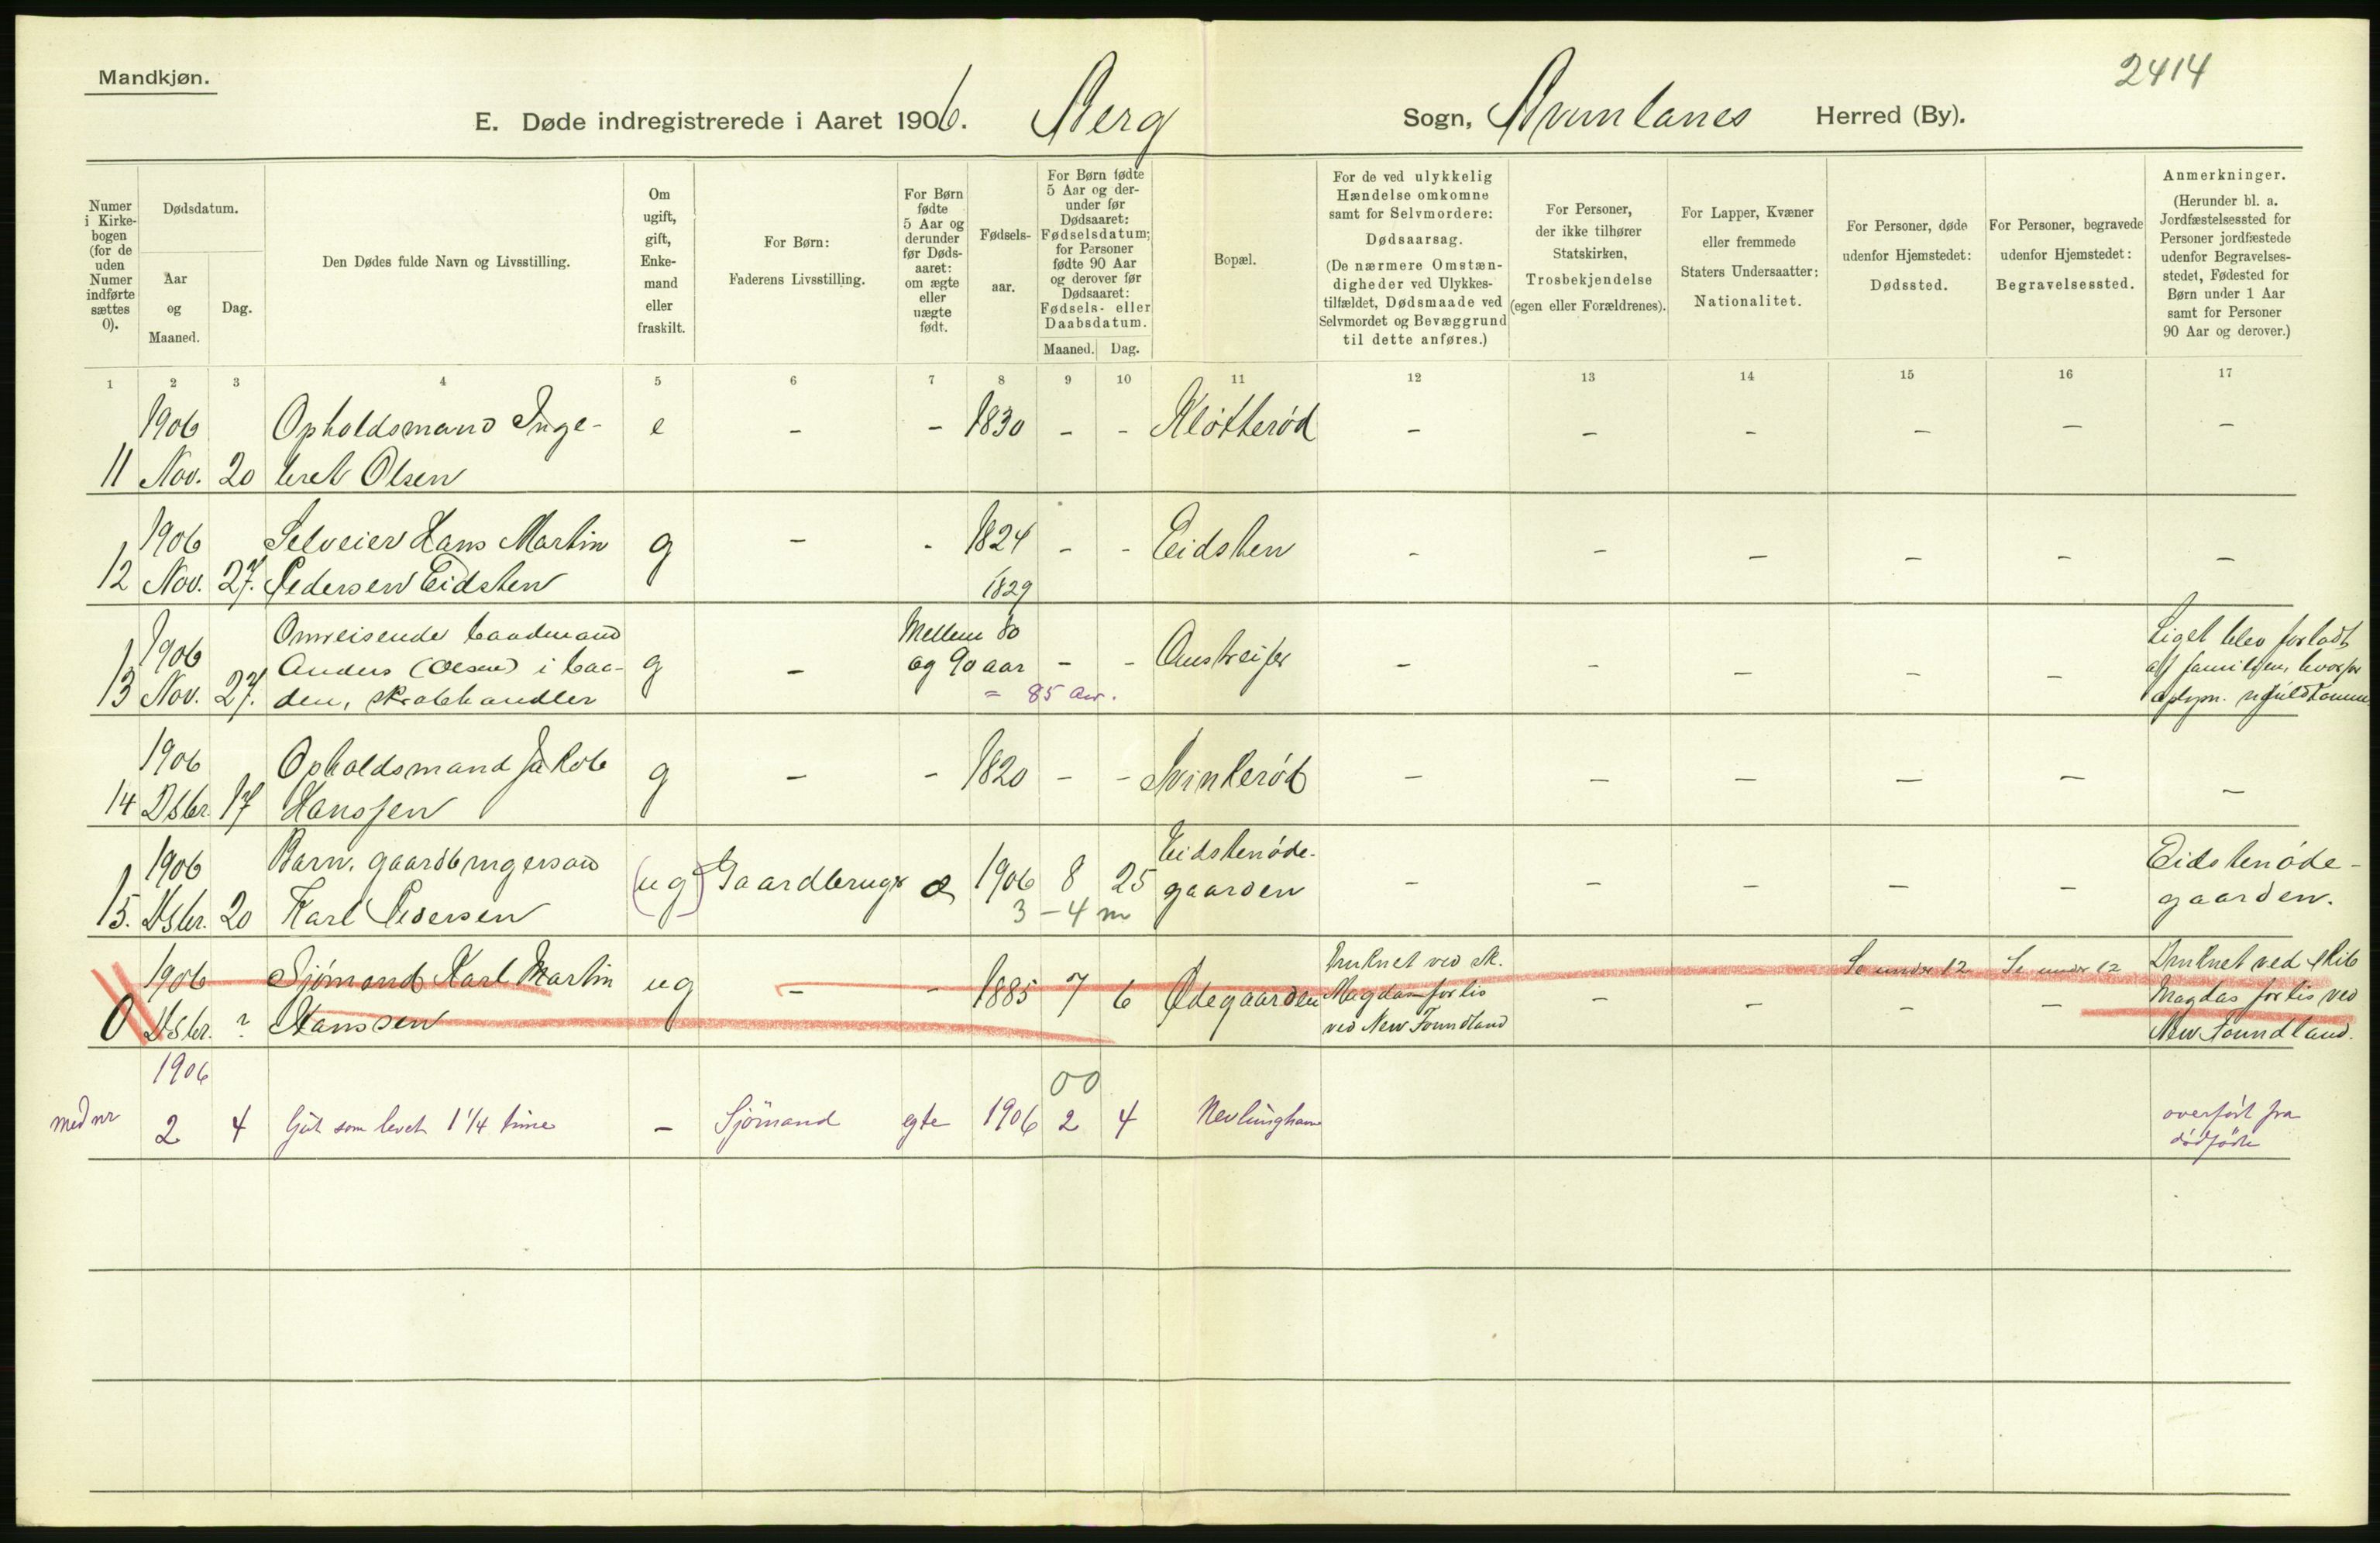 Mandkjøn.
2414
E. Døde indregistrerede i Aaret 1906. Berg Sogn, Brunlanes Herred (By).
Numer i Kirkebogen (for de uden Numer indførte sættes 0).
Dødsdatum.
Aar og Maaned.
Dag.
Den Dødes fulde Navn og Livsstilling.
Om ugift, gift, Enkemand eller fraskilt.
For Børn: Faderens Livsstilling.
For Børn fødte 5 Aar og derunder før Dødsaaret: om ægte eller uægte født.
Fødselsaar.
For Børn fødte 5 Aar og derunder før Dødsaaret: Fødselsdatum; for Personer fødte 90 Aar og derover før Dødsaaret: Fødsels- eller Daabsdatum.
Maaned. Dag.
Bopæl.
For de ved ulykkelig Hændelse omkomne samt for Selvmordere: Dødsaarsag. (De nærmere Omstændigheder ved Ulykkestilfældet, Dødsmaade ved Selvmordet og Bevæggrund til dette anføres.)
For Personer, der ikke tilhører Statskirken, Trosbekjendelse (egen eller Forældrenes).
For Lapper, Kvæner eller fremmede Staters Undersaatter: Nationalitet.
For Personer, døde udenfor Hjemstedet: Dødssted.
For Personer, begravede udenfor Hjemstedet: Begravelsessted.
Anmerkninger. (Herunder bl. a. Jordfæstelsessted for Personer jordfæstede udenfor Begravelsesstedet, Fødested for Børn under 1 Aar samt for Personer 90 Aar og derover.)
1 2 3 4 5 6 7 8 9 10 11 12 13 14 15 16 17
1906 Opholdsmand Inge- e - - 1830 - - Kløtterød - - - - - -
11 Nov. 20 bret Olsen
1906 Selveier Hans Martin g - - 1824 - - Eidsten - - - - - -
12 Nov. 27. Pedersen Eidsten 1829
1906 Omreisende baadmand Mellem 80 Liget blev forladt
Anders (Olsen) i baa- g - og 90 aar - - Oustreifer - - - - - af familien, hvorfor
13 Nov. 27. den, skrabhandler = 85 Aar. oplysn. ufuldkomne
1906 Opholdsmand Jakob g - - 1820 - - Svinkerød - - - - - -
14 Dsbr. 17 Hanssen
1906 Barn, gaardbrugersøn (ug) Gaardbruger æ 1906 8 25 Eidstenøde- - - - - - Eidstenøde-
15. Dsbr. 20 Karl Pedersen 3 - 4 m gaarden gaarden.
1906 Sjømand Karl Martin ug - - 1885 7 6 Ødegaarden Druknet ved sk. Se under 12 Se under 12 Druknet ved skib
Magdas forlis - - - - Magdas forlis ved
0 Dsbr. ? Hanssen ved New Foundland New Foundland.
1906 00
med nr 2 4 Gut som levet 1 1/4 time - Sjömand egte 1906 2 4 Nevlungham overført fra
dödfödte